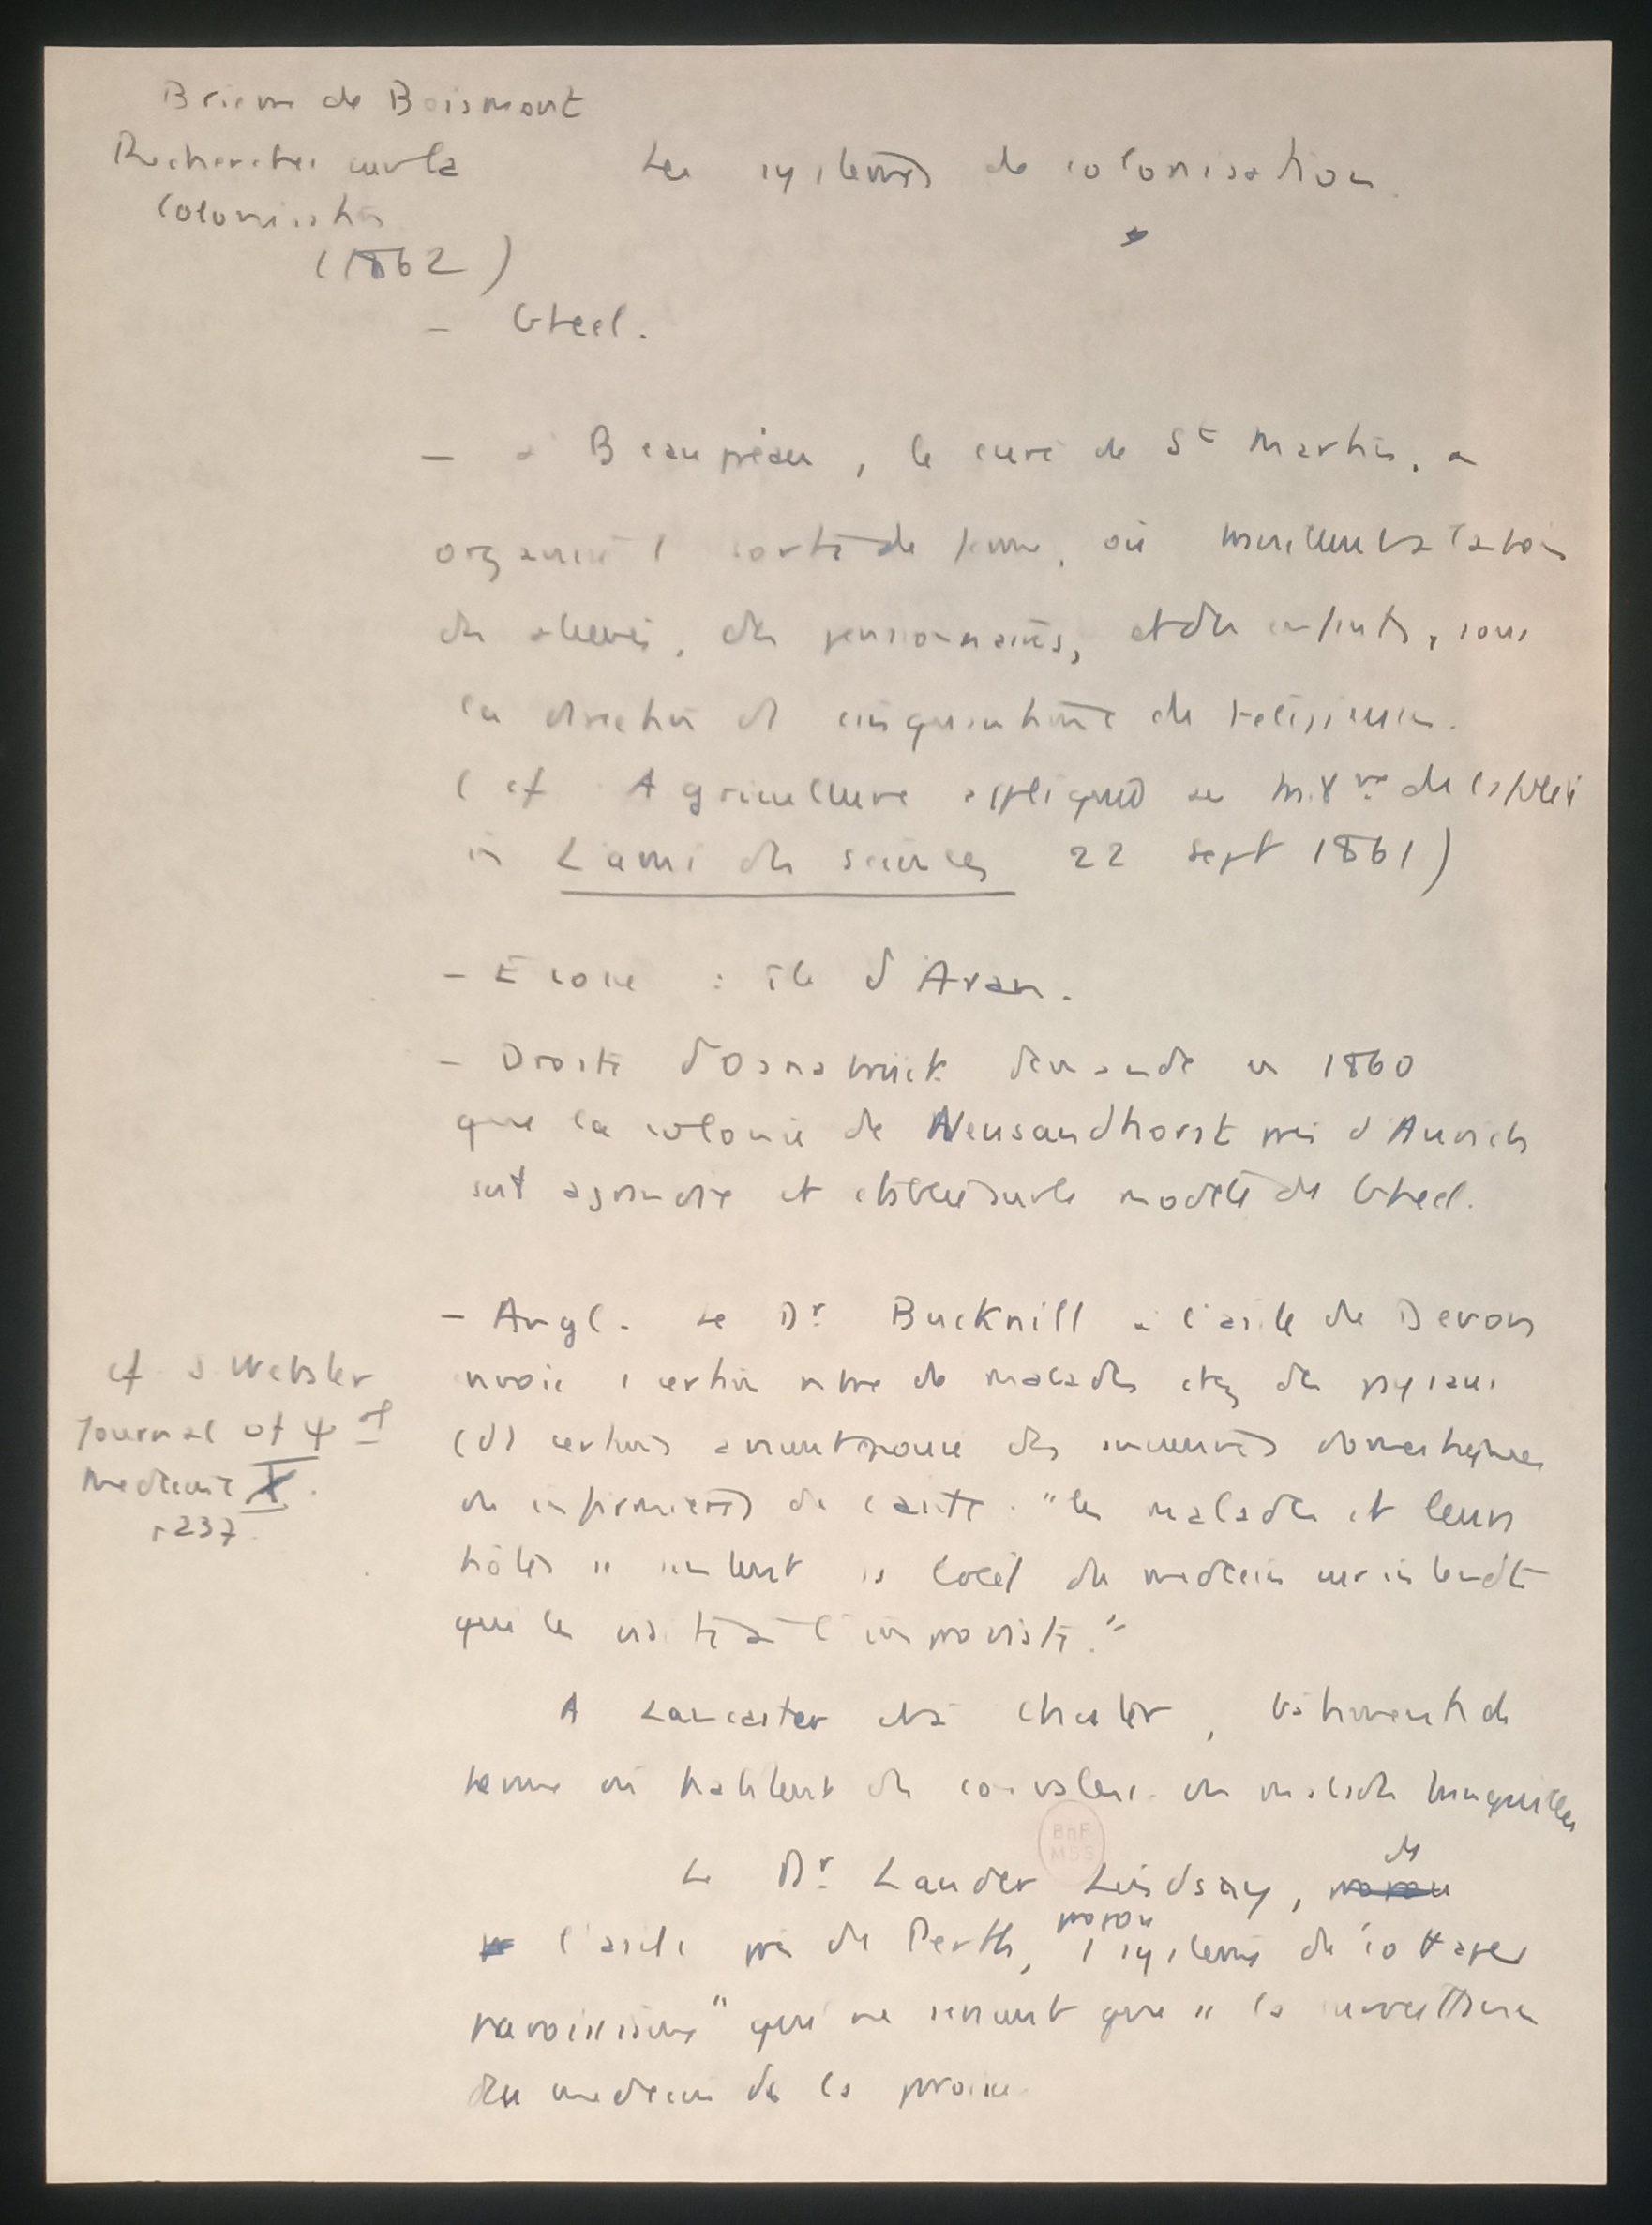 Brierre de Boismont
Recherches sur la
Colonisation
(1862)
Les systèmes de colonisation.
- Gheel.
- à Beaupréau, le curé de St Martin, a
organisé 1 sorte de ferme, où travaillent
des aliénés, des pensionnaires, et des enfants, sous
la direction d' cinquantaine de religieuses.
(cf Agriculture appliquée au
in L'ami des sciences 22 sept 1861)
- Ecosse : île d'Aran.
- Droste d'Osnabrück demande en 1860
que la colonie de Neusandhorst près d'Aurich
soit agrandie et établie sur le modèle de Gheel.
- Angl. Le Dr Bucknill à l'asile de Devon
envoie 1 certain nbre de malades chez des paysans
(dt certains avaient épousé des anciennes domestiques
ou infirmières de l'asile. "les malades et leurs
hôtes" sentent "s l'oeil du médecin surintendt
qui les visite à l'improviste."
cf J. Webster
Journal of ψ al
Medecine X.
p 237.
A Lancaster et à Chester, bâtiments de
ferme où habitent des convalesc. ou malades tranquilles
Le Dr Lauder Lindsay, de
l'asile près de Perth, propose 1 système de cottages
paroissiaux "qui ne seraient que" s la surveillance
du médecin de la paroisse
BnF
MSS